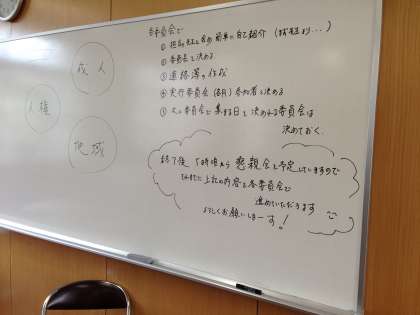 各委員会で
① 担当主事と含め 簡単に自己紹介
② 委員長を決める
③ 連絡簿の作成
④ 実行委員会(8/1) 参加者を決める
⑤ 次に委員会で集まる日を決めれる委員会は
決めておく.
成人
人権
地域
終了後 5時頃から 懇親会を予定していますので
上記の内容を各委員会で
進めていただきます
よろしくお願いしまーす!